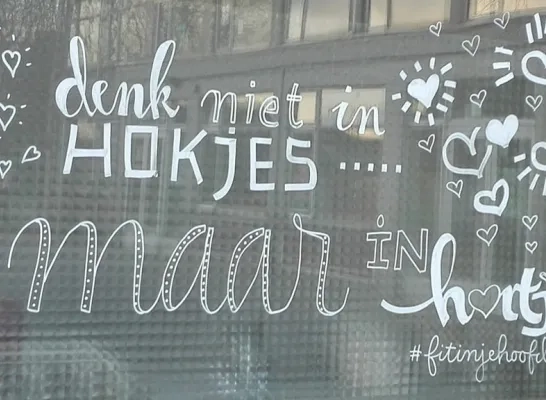 denk niet in
HOKJES .....
maar IN
hartj
#fitinjehoofd